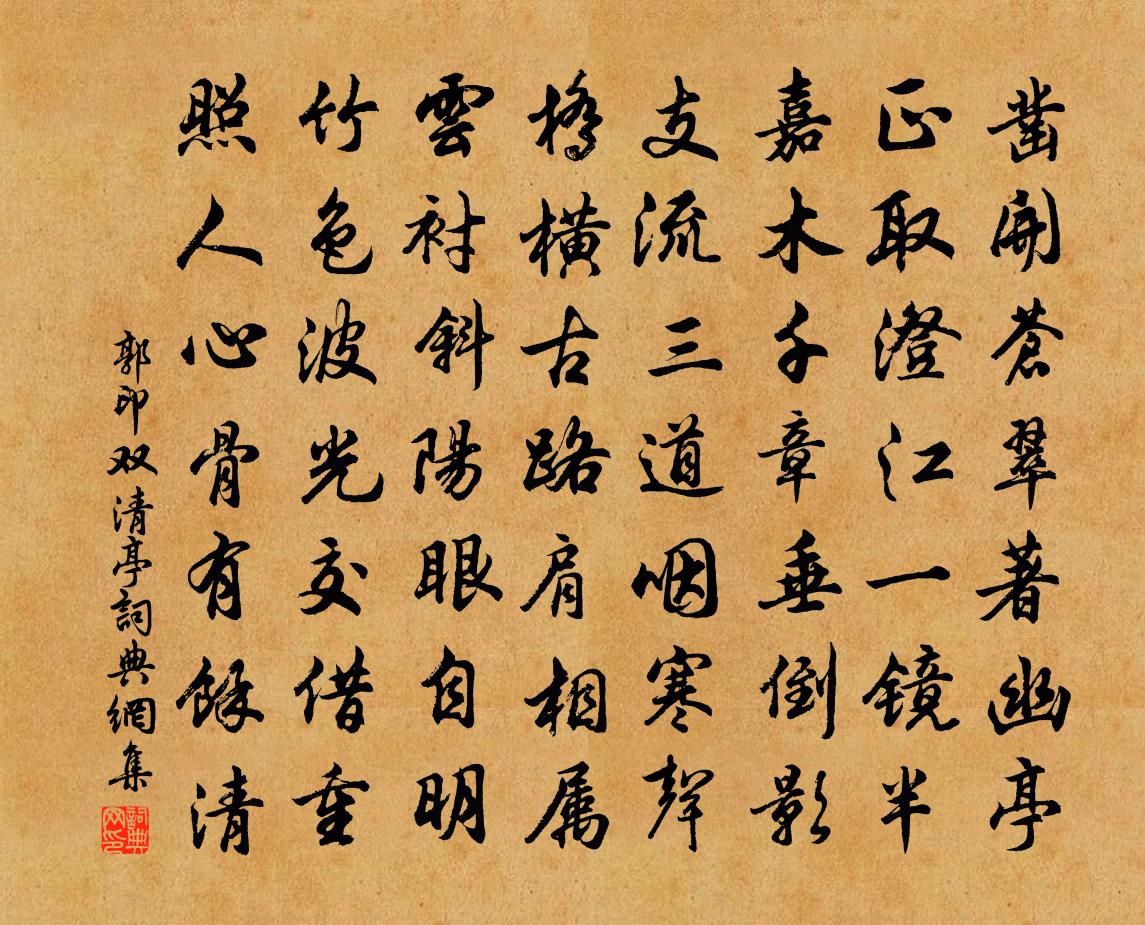 凿開蒼翠著幽亭
正取澄江一镜半
嘉木千章垂倒影
支流三道咽寒聲
橋横古路肩相属
雲衬斜陽眼自明
竹色波光交借重
照人心骨有餘清
郭印双清亭詞典網集
詞典网印